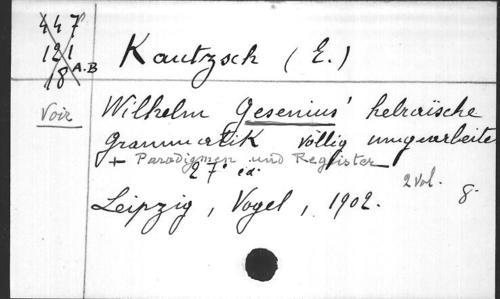 447
121
18 A.B
Kautzsch (E.)
Voir
Wilhelm Gesenius' hebräische
Grammatik völlig umgearbeitet
+ Paradigmen und Register
27e éd.
2 vol.
8.
Leipzig, Vogel, 1902.